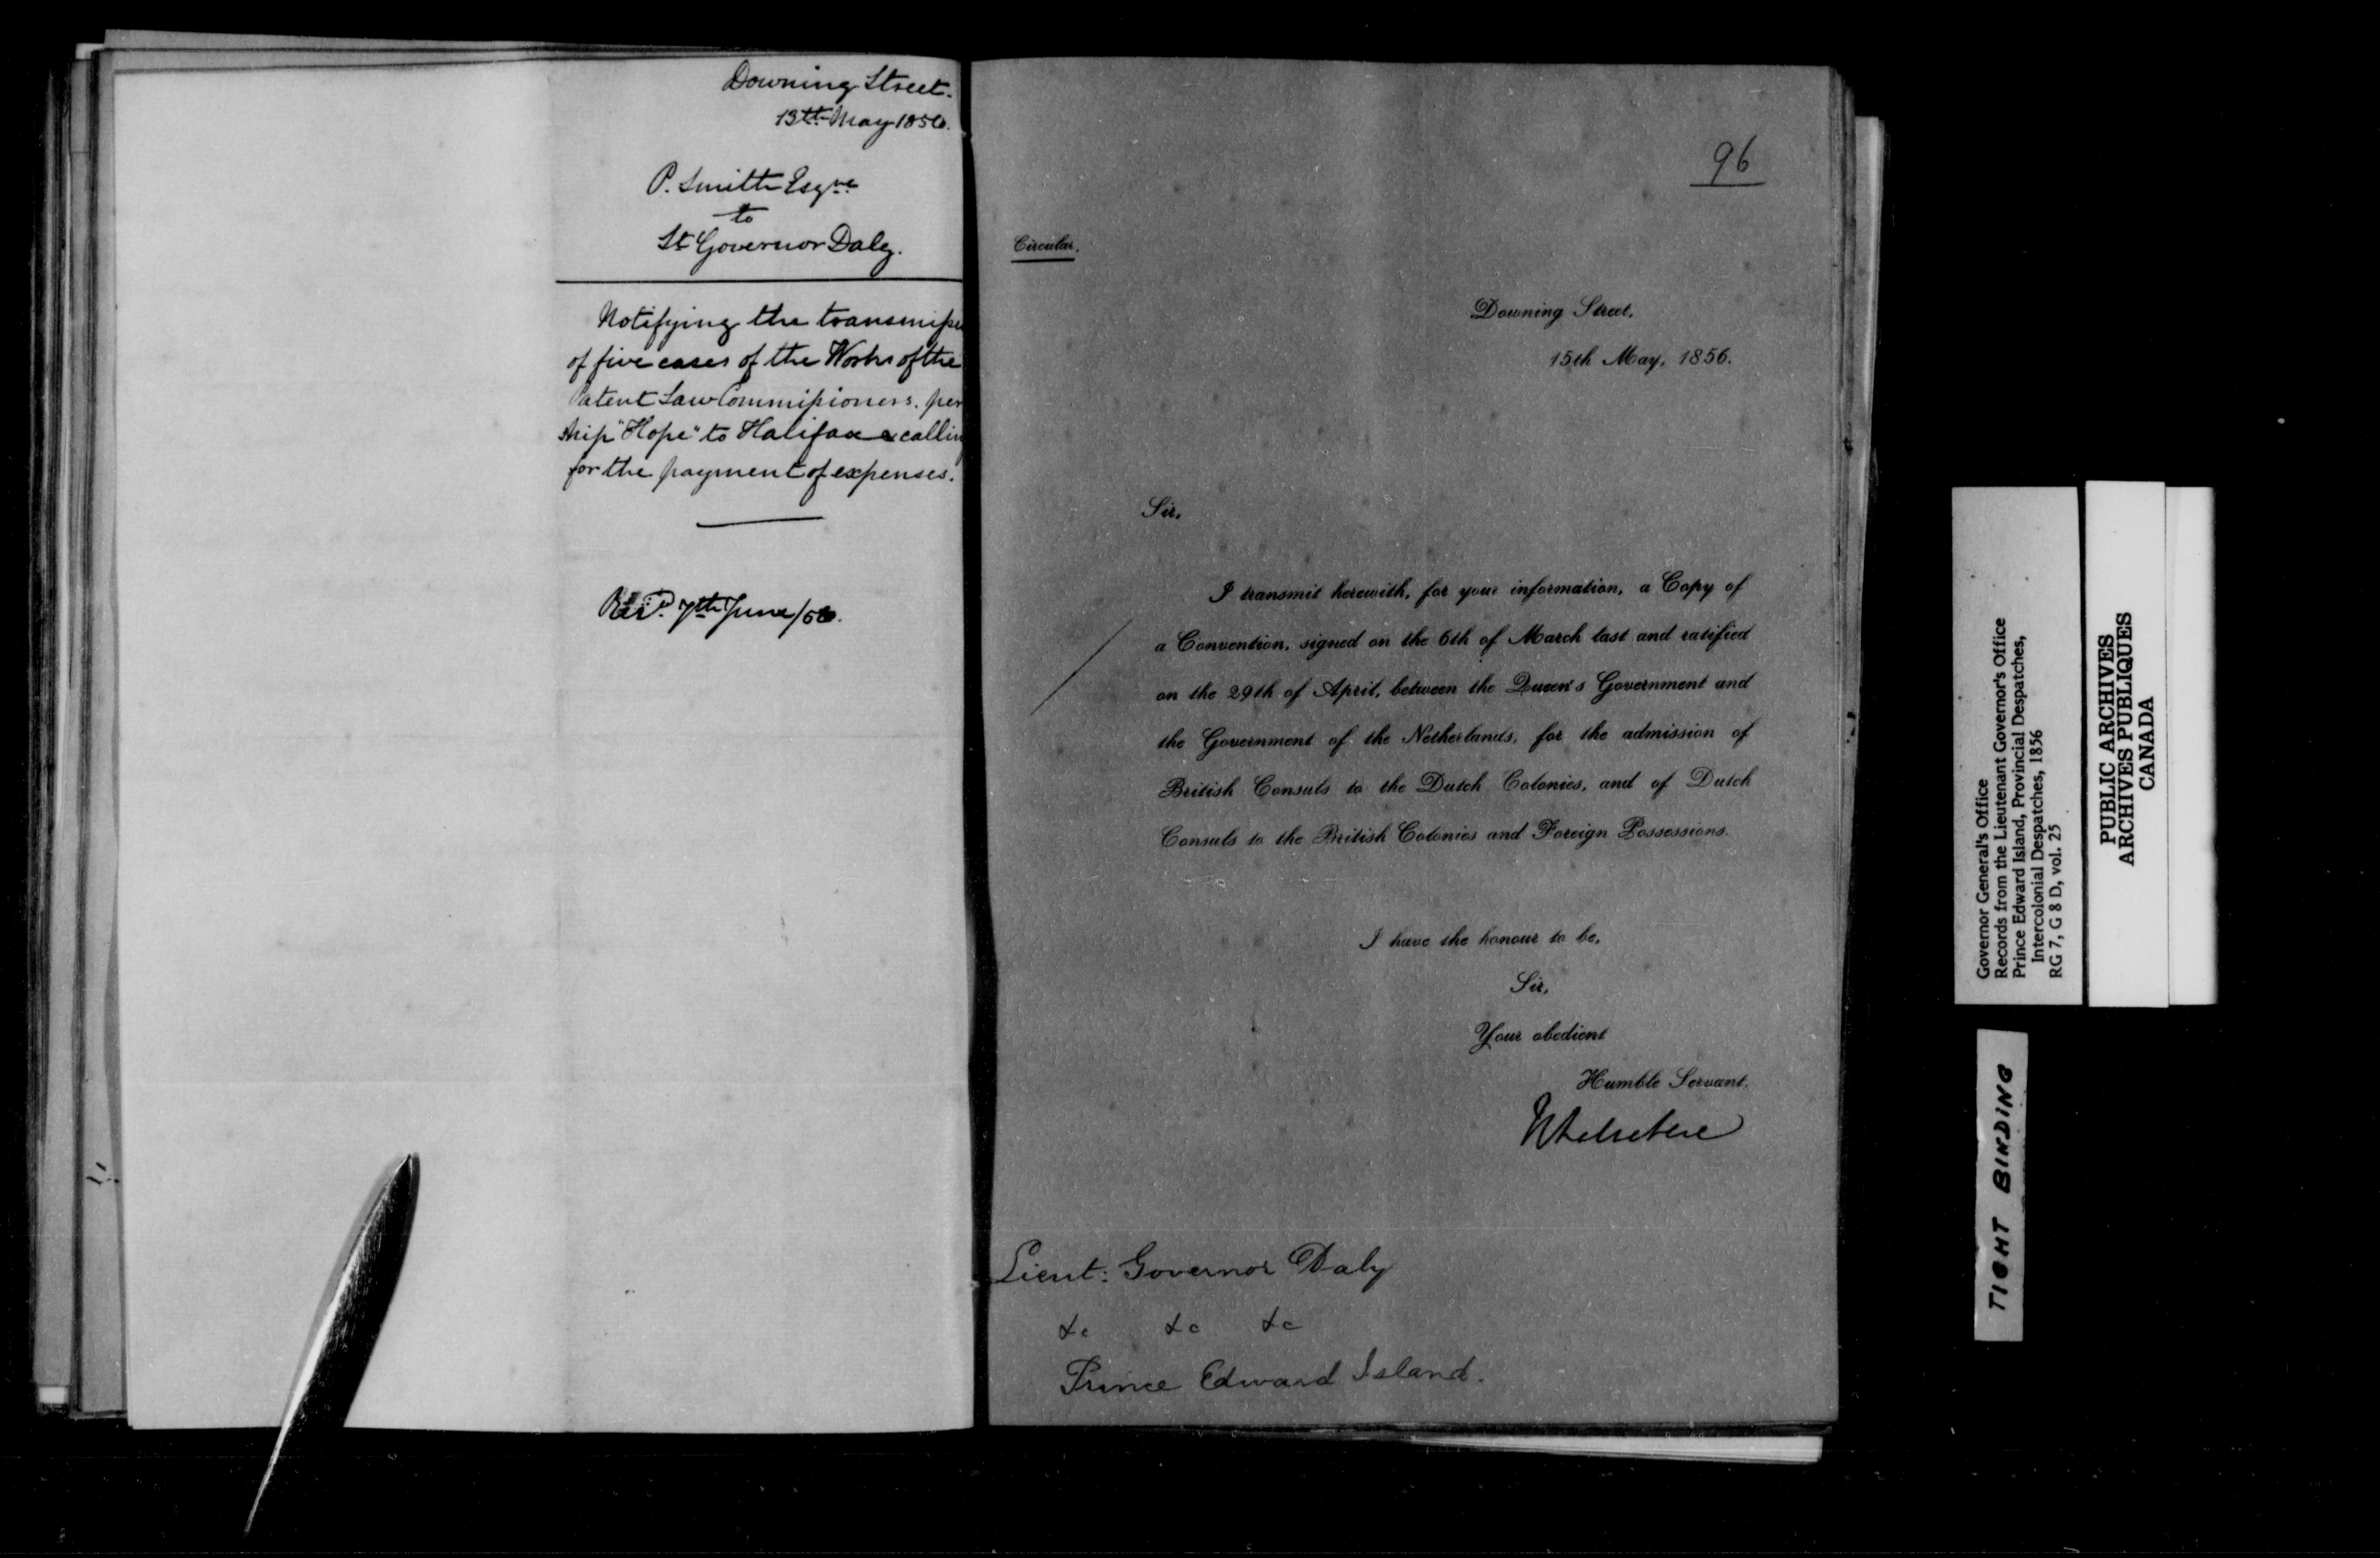 Downing Street.
13th May 1856.
P. Smith Esqre.
to
Lt Governor Daly.
Notifying the transmiss
of five cases of the Works of the
Patent Law Commissioners, per
ship "Hope" to Halifax & callin
for the payment of expenses.
Recd. 7th June/56.
96
Circular.
Downing Street,
15th May, 1856.
Sir,
I transmit herewith, for your information, a Copy of
a Convention, signed on the 6th of March last and ratified
on the 29th of April, between the Queen's Government and
the Government of the Netherlands, for the admission of
British Consuls to the Dutch Colonies, and of Dutch
Consuls to the British Colonies and Foreign Possessions.
I have the honour to be,
Sir,
Your obedient
Humble Servant.
Lieut: Governor Daly
&c &c &c
Prince Edward Island.
Governor General's Office
Records from the Lieutenant Governor's Office
Prince Edward Island, Provincial Despatches,
Intercolonial Despatches, 1856
RG 7, G 8 D, vol. 25
PUBLIC ARCHIVES
ARCHIVES PUBLIQUES
CANADA
TIGHT BINDING